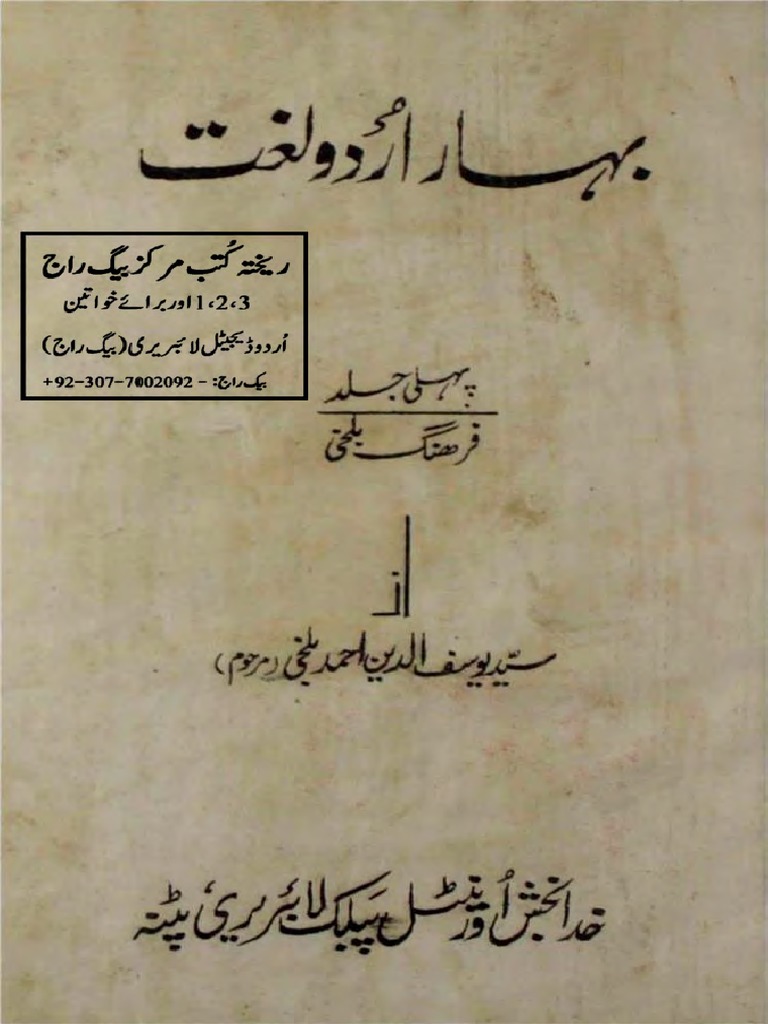 بہار اُردو لغت
ریختہ کُتب مرکز بیگ راج
1،2،3 اور برائے خواتین
اُردو ڈیجیٹل لائبریری (بیگ راج)
بیگ راج: - 92-307-7002092+
پہلی جلد
فرھنگ بلخی
از
سیّد یوسف الدین احمد بلخی (مرحوم)
خدا بخش اُورینٹل پبلک لائبریری پٹنہ